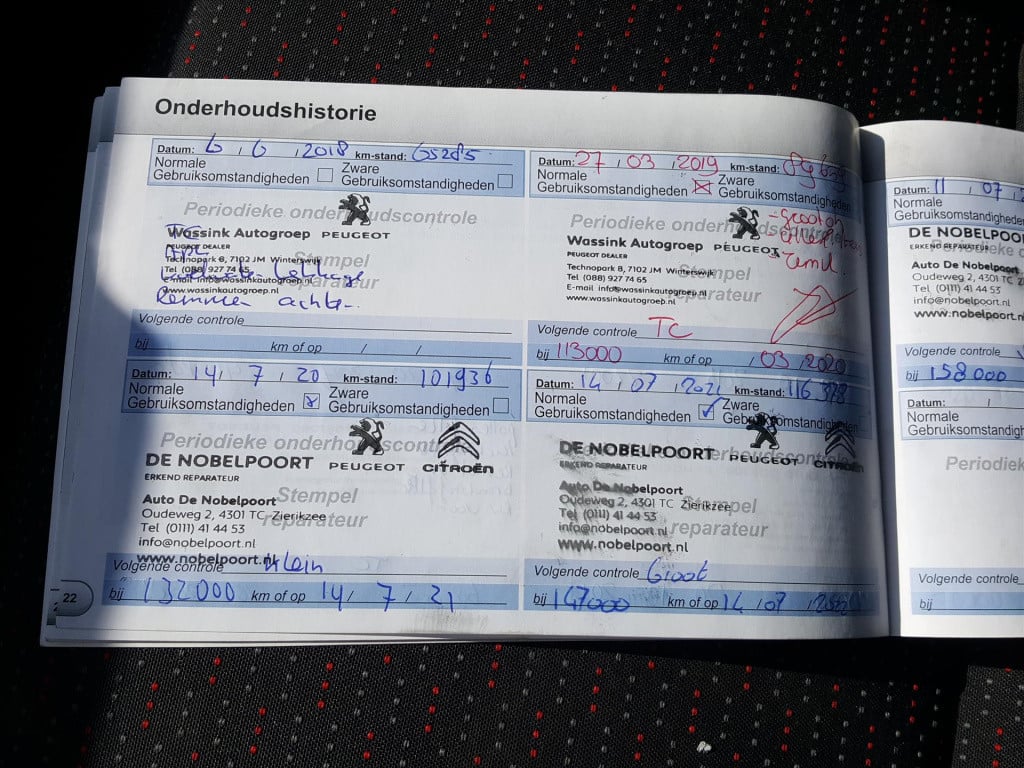 Onderhoudshistorie
Datum: 6 / 6 / 2018 km-stand: 65285
Normale Gebruiksomstandigheden
Zware Gebruiksomstandigheden
Periodieke onderhoudscontrole
Wassink Autogroep PEUGEOT
PEUGEOT DEALER
Technopark 6, 7102 JM Winterswijk
Tel (088) 927 74 65
E-mail info@wassinkautogroep.nl
www.wassinkautogroep.nl
Stempel
reparateur
Remmen achter
Volgende controle
bij km of op / /
Datum: 27 / 03 / 2019 km-stand:
Normale Gebruiksomstandigheden
Zware Gebruiksomstandigheden
Periodieke onderhoudscontrole
Wassink Autogroep PEUGEOT
PEUGEOT DEALER
Technopark 8, 7102 JM Winterswijk
Tel (088) 927 74 65
E-mail info@wassinkautogroep.nl
www.wassinkautogroep.nl
Stempel
reparateur
Volgende controle TC
bij 113000 km of op / 03 / 2020
Datum: 14 / 7 / 20 km-stand: 101936
Normale Gebruiksomstandigheden
Zware Gebruiksomstandigheden
Periodieke onderhoudscontrole
DE NOBELPOORT PEUGEOT CITROËN
ERKEND REPARATEUR
Auto De Nobelpoort
Oudeweg 2, 4301 TC Zierikzee
Tel (0111) 41 44 53
info@nobelpoort.nl
www.nobelpoort.nl
Stempel
reparateur
Volgende controle Klein
bij 132000 km of op 14 / 7 / 21
Datum: 14 / 07 / 2021 km-stand: 116378
Normale Gebruiksomstandigheden
Zware Gebruiksomstandigheden
Periodieke onderhoudscontrole
DE NOBELPOORT PEUGEOT CITROËN
ERKEND REPARATEUR
Auto De Nobelpoort
Oudeweg 2, 4301 TC Zierikzee
Tel (0111) 41 44 53
info@nobelpoort.nl
www.nobelpoort.nl
Stempel
reparateur
Volgende controle Groot
bij 147000 km of op 14 / 07 / 2022
22
Datum: 11 / 07 /
Normale
Gebruiksomstandigheden
DE NOBELPOO
ERKEND REPARATEUR
Periodieke
Auto De Nobelpoort
Oudeweg 2, 4301 TC
Tel (0111) 41 44 53
info@nobelpoort.nl
www.nobelpoort
Volgende controle
bij 158000
Datum: /
Normale
Gebruiksomstandigh
Periodiek
Volgende controle
bij